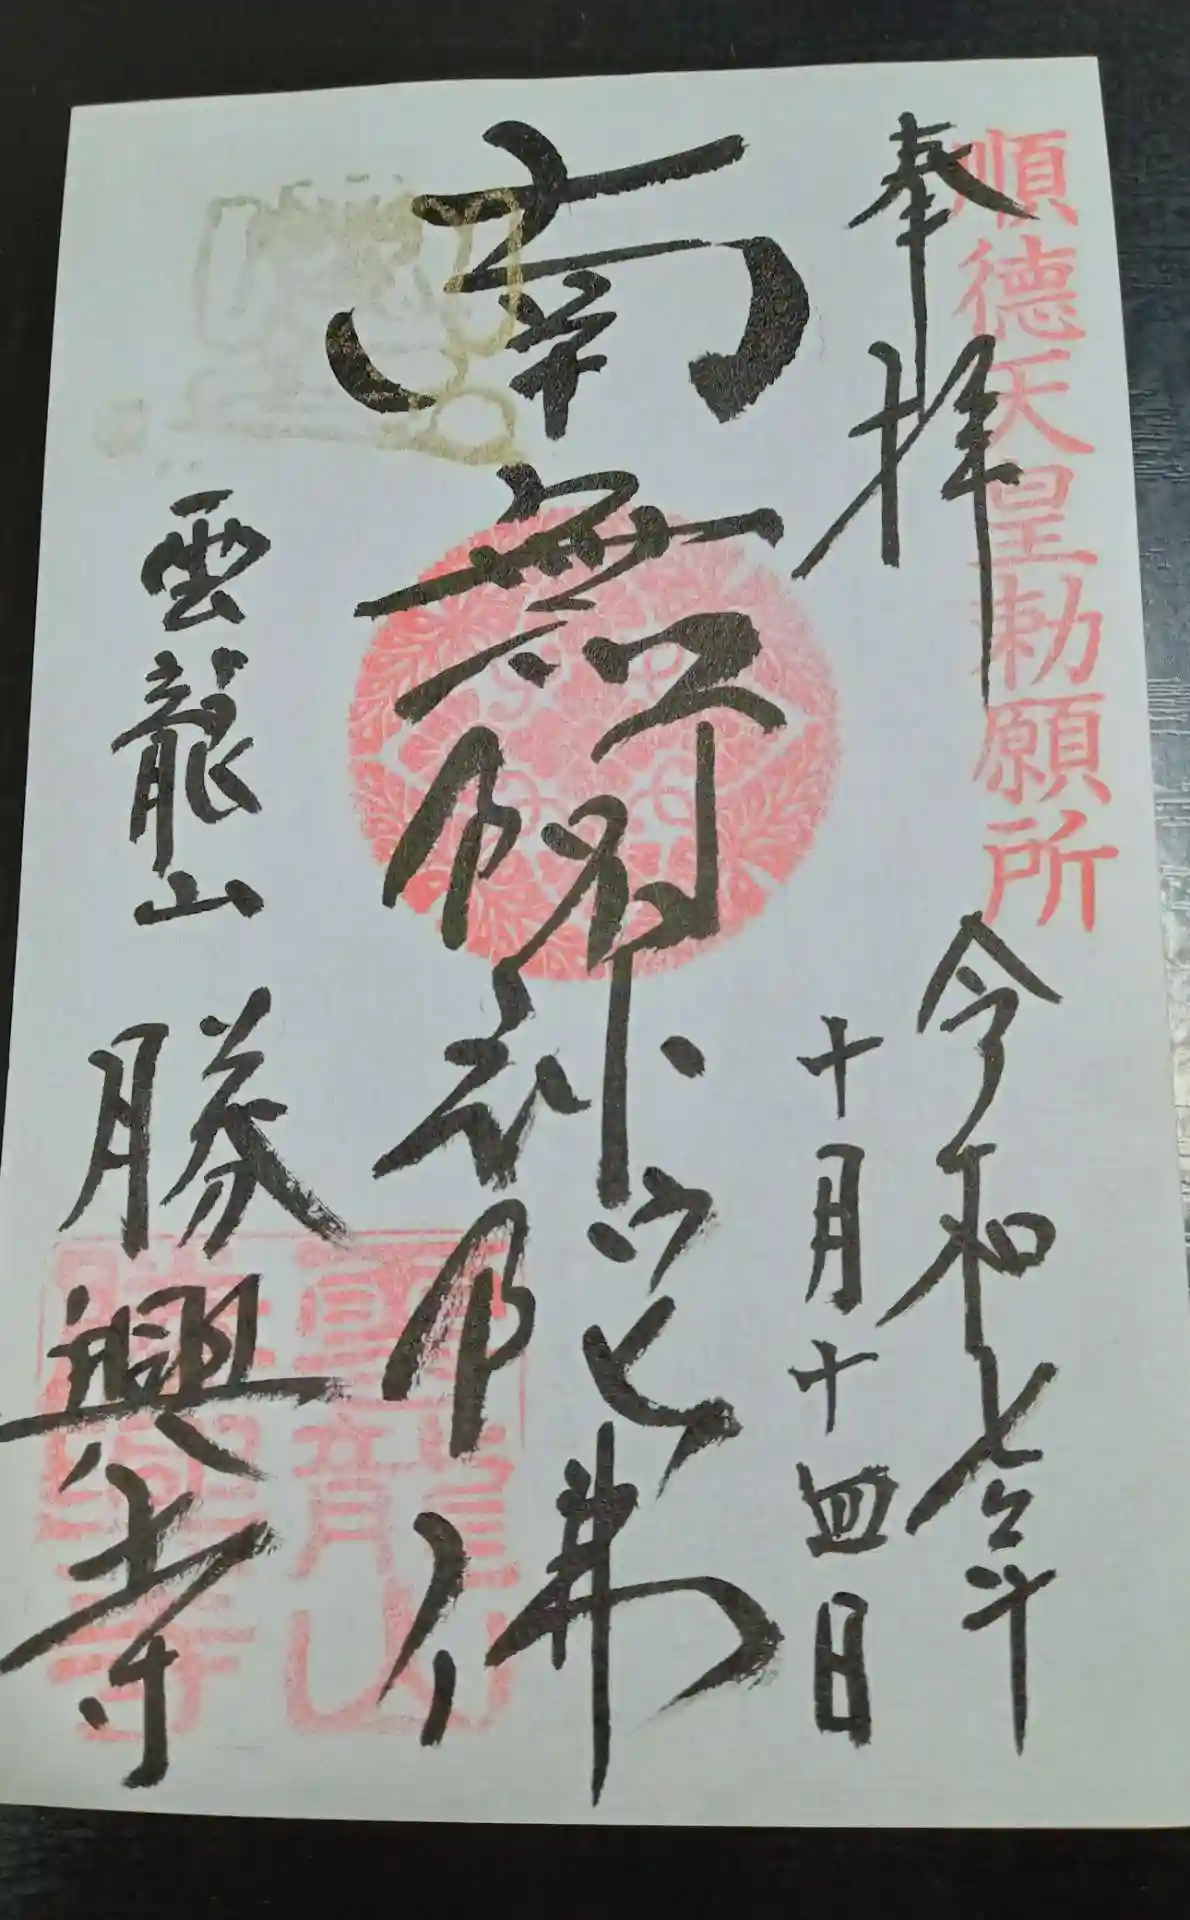 順徳天皇勅願所
奉拝
令和七年
十月十四日
南無阿弥陀佛
雲龍山
勝興寺
雲龍山
勝興寺